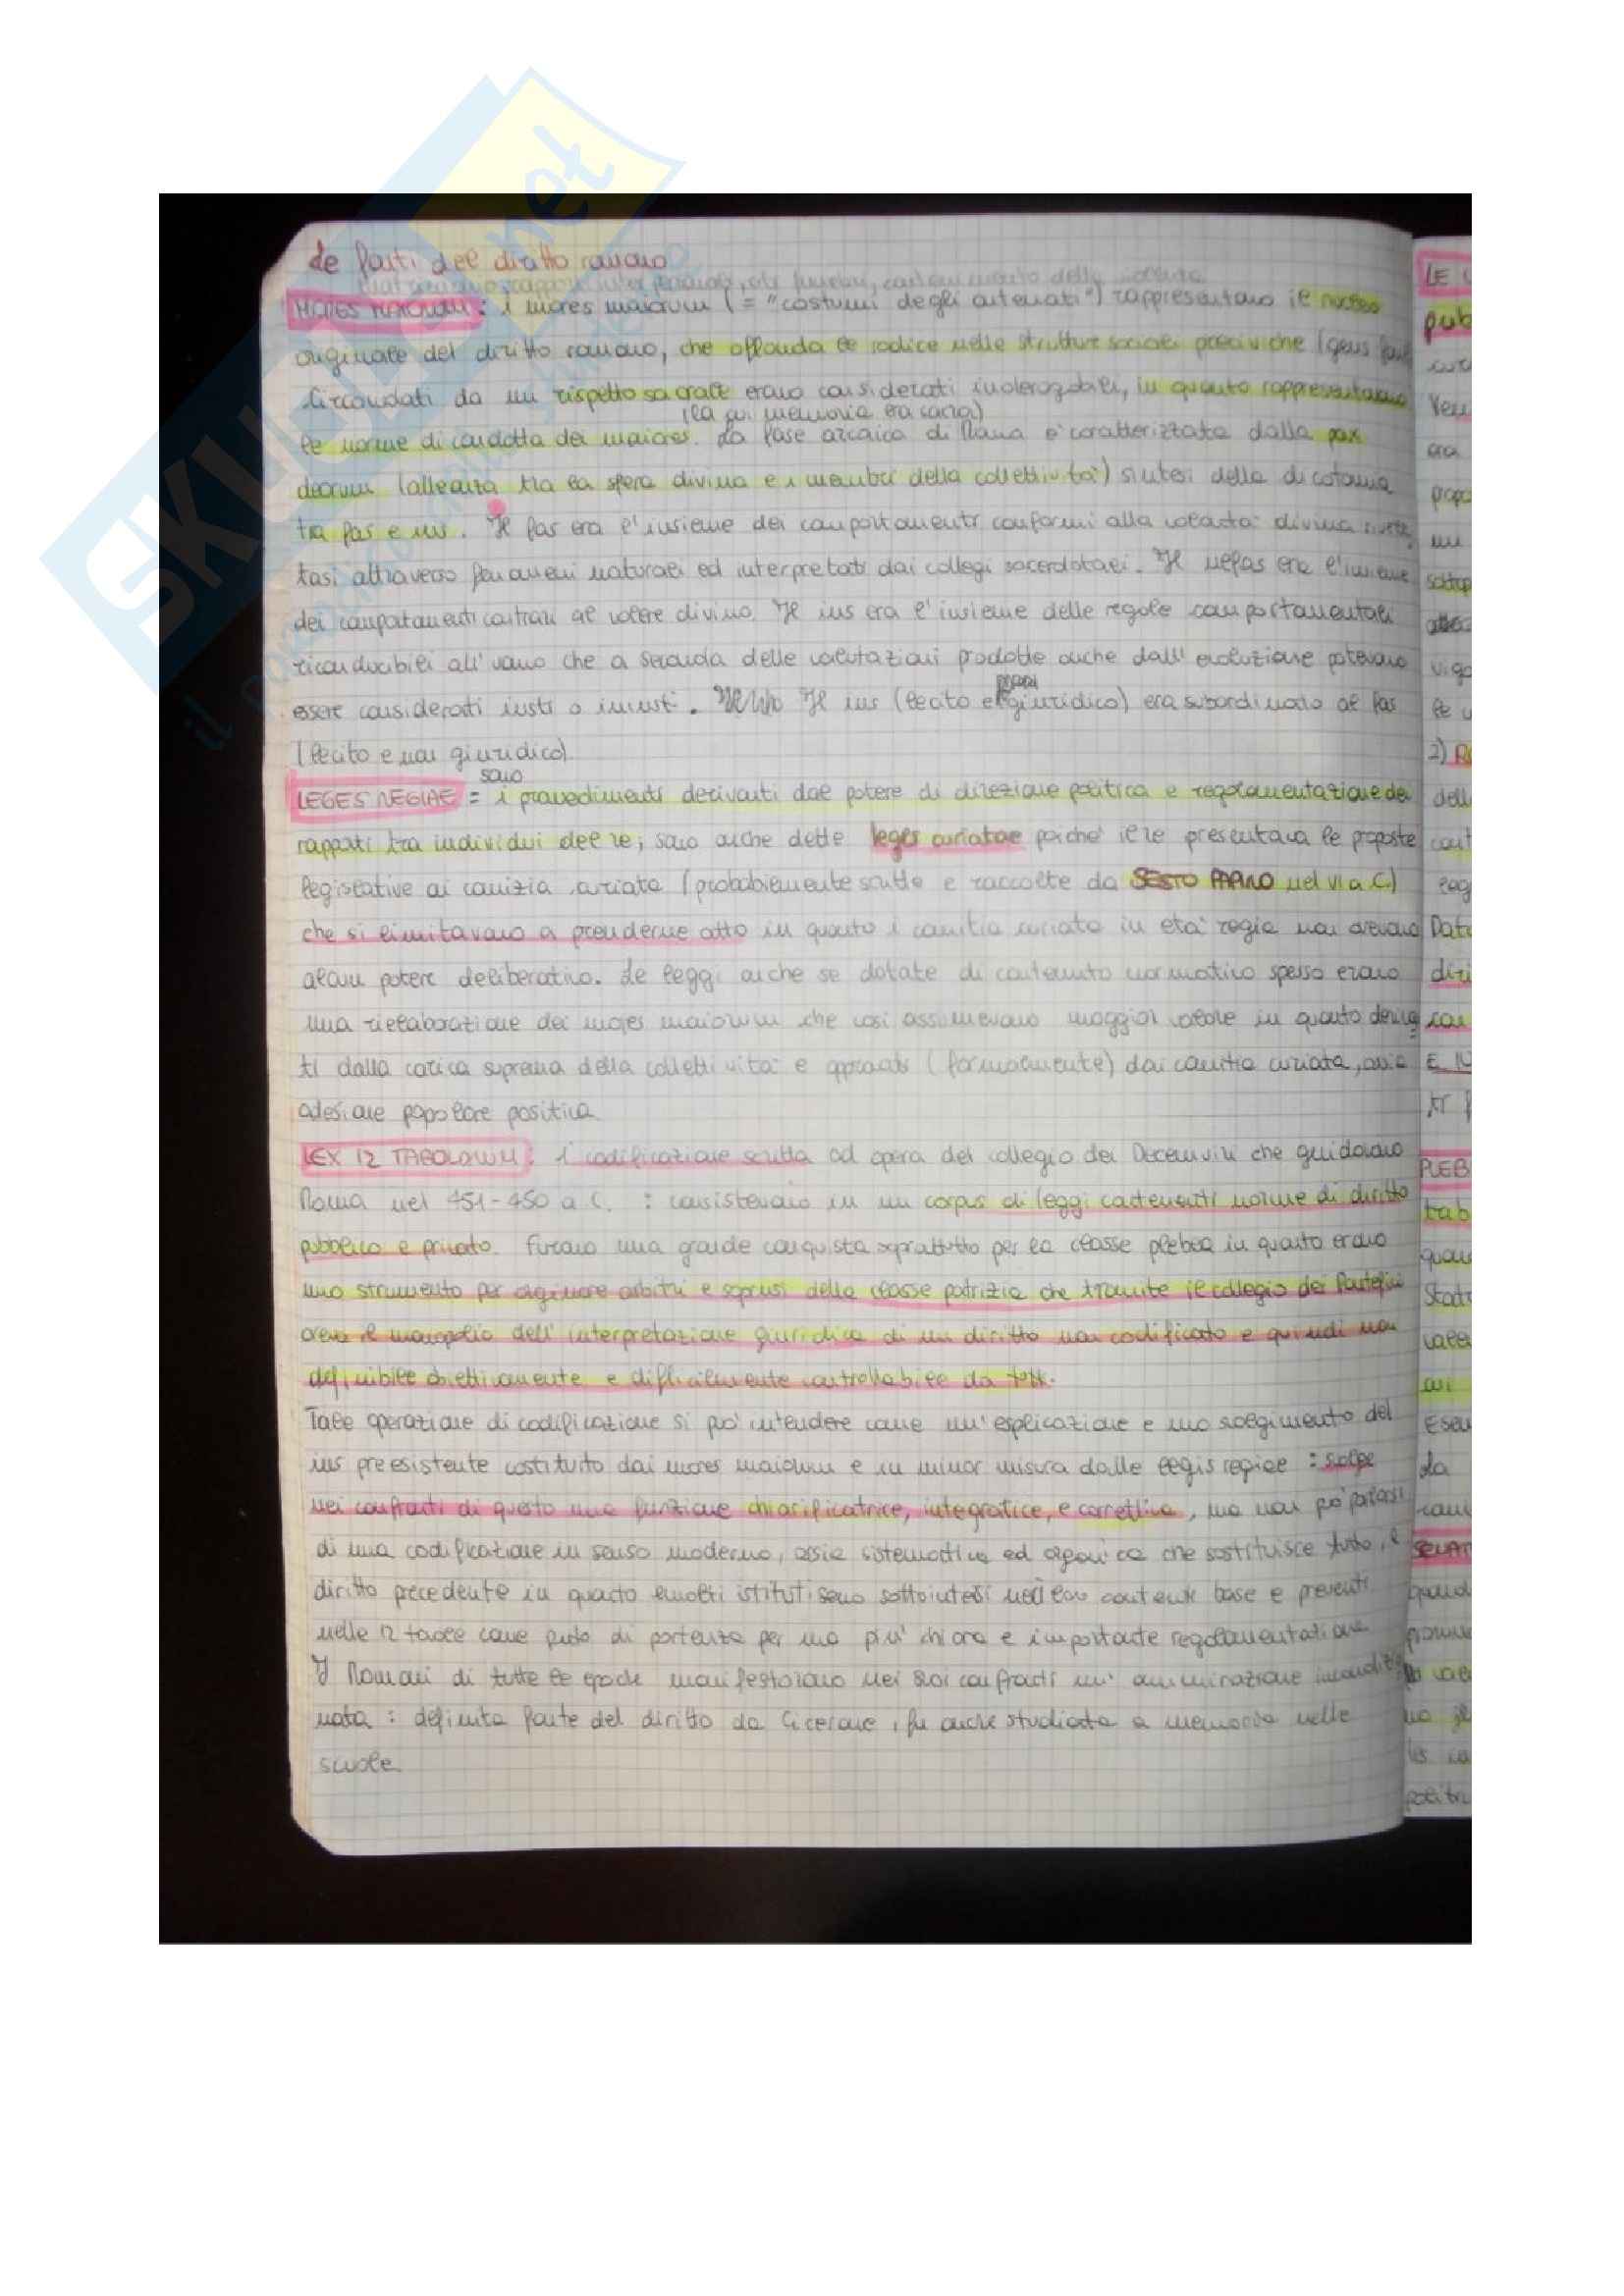 SKUOLA.net
il paradiso dello studente
Le fonti del diritto romano
MORES MAIORUM: i mores maiorum (= "costumi degli antenati") rappresentano il nucleo
originale del diritto romano, che affonda le radice nelle strutture sociali preciviche (gens
Circondati da un rispetto sacrale erano considerati inderogabili, in quanto rappresentavano
(la cui memoria era sacra)
le norme di condotta dei maiores. La fase arcaica di Roma è caratterizzata dalla pax
deorum (alleanza tra la sfera divina e i membri della collettività) sintesi della dicotomia
tra fas e ius. Il fas era l'insieme dei comportamenti conformi alla volontà divina
tasi attraverso fenomeni naturali ed interpretati dai collegi sacerdotali. Il nefas era l'insieme
dei comportamenti contrari al volere divino. Il ius era l'insieme delle regole comportamentali
riconducibili all'uomo che a seconda delle valutazioni prodotte anche dall'evoluzione potevano
essere considerati iusti o iniusti. Il ius (lecito e giuridico) era subordinato al fas
(lecito e non giuridico)
sono
LEGES REGIAE = i provvedimenti derivanti dal potere di direzione politica e regolamentazione dei
rapporti tra individui del re; sono anche dette leges curiatae poichè il re presentava le proposte
legislative ai comizia curiata (probabilmente scritte e raccolte da SESTO PAPIRIO nel VI a.C.)
che si limitavano a prenderne atto in quanto i comitia curiata in età regia non avevano
alcun potere deliberativo. Le leggi anche se dotate di contenuto normativo spesso erano
una rielaborazione dei mores maiorum che così assumevano maggior valore in quanto
ti dalla carica suprema della collettività e approvati (formalmente) dai comitia curiata, ossia
adesione popolare positiva
LEX 12 TABOLARUM: 1 codificazione scritta ad opera del collegio dei Decemviri che guidarono
Roma nel 451-450 a.C. : consistevano in un corpus di leggi contenenti norme di diritto
pubblico e privato. Furono una grande conquista soprattutto per la classe plebea in quanto erano
uno strumento per arginare arbitri e soprusi della classe patrizia che tramite il collegio dei Pontefici
aveva il monopolio dell'interpretazione giuridica di un diritto non codificato e quindi non
definibile obiettivamente e difficilmente controllabile da tutti.
Tale operazione di codificazione si può intendere come un'esplicazione e uno svolgimento del
ius preesistente costituito dai mores maiorum e in minor misura dalle legis regiae : svolge
nei confronti di questo una funzione chiarificatrice, integratice, e correttiva, ma non può parlarsi
di una codificazione in senso moderno, ossia sistematica ed organica che sostituisce tutto il
diritto precedente in quanto molti istituti sono sottointesi nel loro contenuti base e
nelle 12 tavole come punto di partenza per una più chiara e importante regolamentazione
I Romani di tutte le epoche manifestarono nei suoi confronti un'amminazione incondizio
nata : definita fonte del diritto da Cicerone, fu anche studiata a memoria nelle
scuole